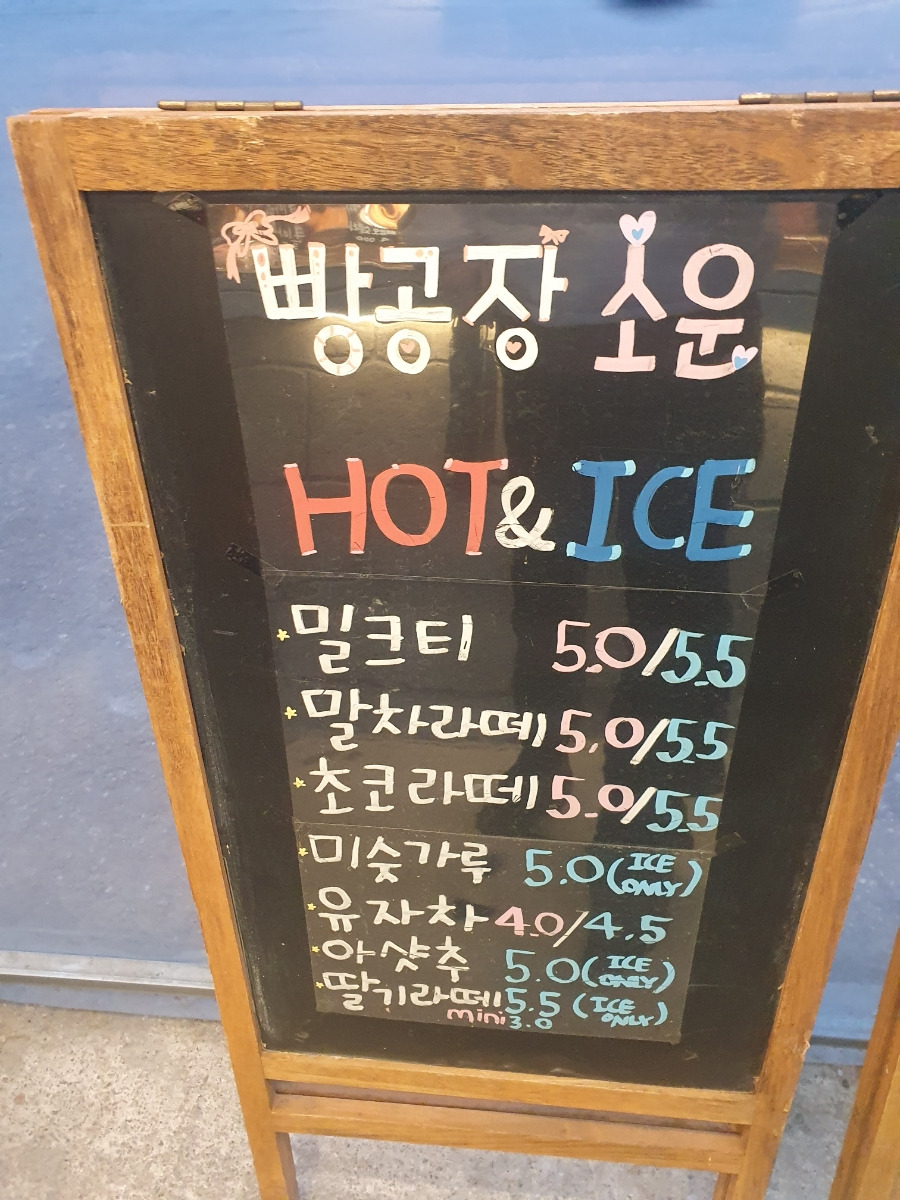 빵공장 소운
HOT & ICE
밀크티 5.0/5.5
말차라떼 5.0/5.5
초코라떼 5.0/5.5
미숫가루 5.0 (ICE ONLY)
유자차 4.0/4.5
아샷추 5.0 (ICE ONLY)
딸기라떼 5.5 (ICE ONLY)
mini 3.0